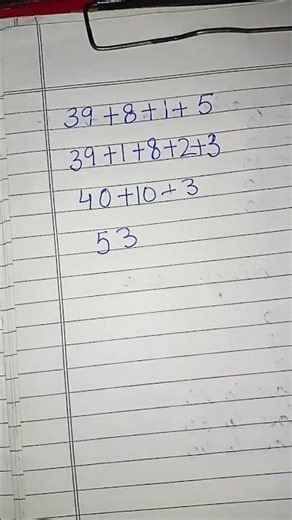 39+8+1+5
39+1+8+2+3
40+10+3
53